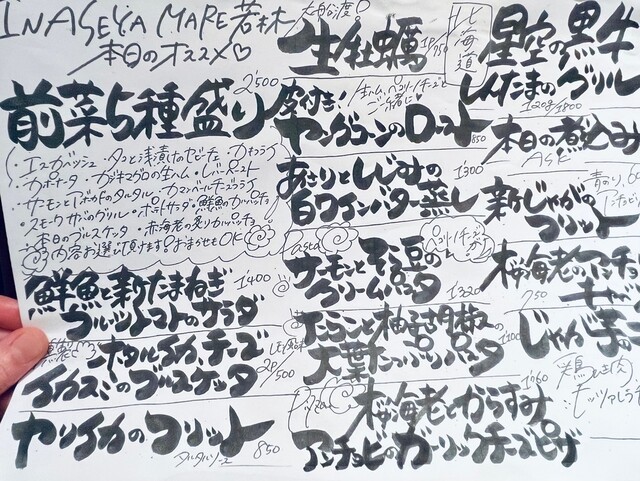 INASEYA MARE 若林
本日のオススメ♡
前菜5種盛り 2'500
・エスカベッシュ ・タコと浅漬けのセビーチェ ・カキフライ
・カポナータ ・カジキマグロの生ハム ・レバーペースト
・サーモンとアボカドのタルタル ・カマンベールチーズフライ
・スモークサバのグリル ・ポテトサラダ ・鮮魚のカルパッチョ
・本日のブルスケッタ ・赤海老の炙りカルパッチョ
内容お選び頂けます。おまかせもOK
鮮魚と新たまねぎ
フルーツトマトのサラダ 1'400
ホタルイカ、チーズ
イカスミのブルスケッタ 2P 500
ヤリイカのフリット 850
タルタルソース
生牡蠣 1P 750
皮付き!
ヤングコーンのロースト 850
生ハム、ペコリーノチーズと
ご一緒に♡
あさりとしじみの
白ワインバター蒸し 1'300
Pasta
サーモンとそら豆の
クリームパスタ 1'320
柚子胡椒の
大葉たっぷりパスタ
桜海老とからすみ 1'60
アンチョビのガーリックチーズピザ
北海道
星空の黒牛
しんたまのグリル
120g 1'800
本日の煮込み
新じゃがの
フリット
桜海老の
750
じゃが芋の